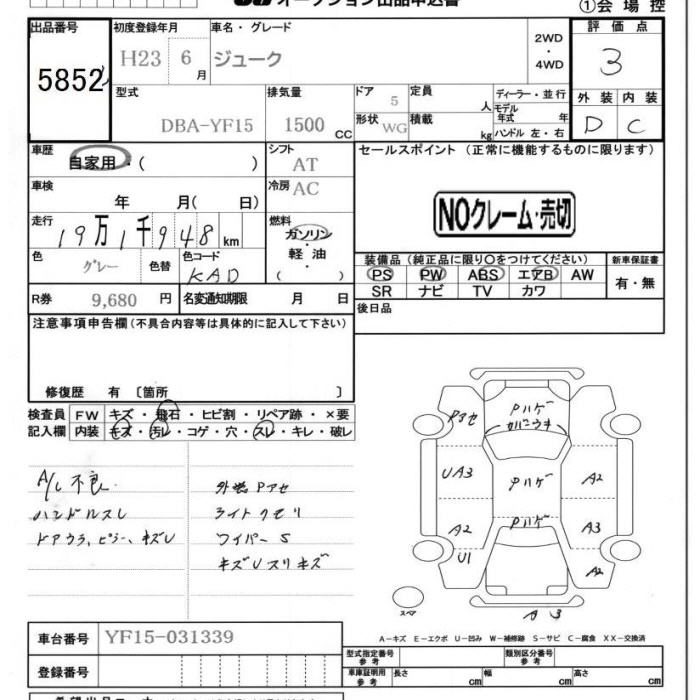 オークション出品申込書
①会場控
出品番号 初度登録年月 車名・グレード 評価点
5852 H23 6月 ジューク 2WD・4WD 3
型式 排気量 ドア 定員 ディーラー・並行 外装 内装
DBA-YF15 1500CC 5 人 モデル年式 年 D C
形状 WG 積載 kg ハンドル 左・右
車歴 シフト セールスポイント(正常に機能するものに限ります)
自家用・( ) AT
車検 冷房
年 月( 日) AC NOクレーム・売切
走行 燃料
19万1千948km ガソリン・軽油・( )
色 色替 色コード 装備品(純正品に限り○をつけてください) 新車保証書
グレー KAD PS PW ABS エアB AW 有・無
SR ナビ TV カワ
R券 9,680円 名変通知期限 月 日
後日品
注意事項申告欄(不具合内容等は具体的に記入して下さい)
修復歴 有〔箇所 〕
検査員 FW キズ・飛石・ヒビ割・リペア跡・×要
記入欄 内装 キズ・汚レ・コゲ・穴・スレ・キレ・破レ
A/C不良
ハンドルスレ
ドアウラ、ピラー、キズU
外装Pアセ
ライトクモリ
ワイパーS
キズUスリキズ
Pハゲ
Pアセ
UA3 Pハゲ A2
Pハゲ
A2 A3
U1 A2
スペア A3
A－キズ E－エクボ U－凹み W－補修跡 S－サビ C－腐食 XX－交換済
車台番号 YF15-031339
型式指定番号 参考 類別区分番号 参考
登録番号 車庫証明用 参考 長さ cm 幅 cm 高さ cm